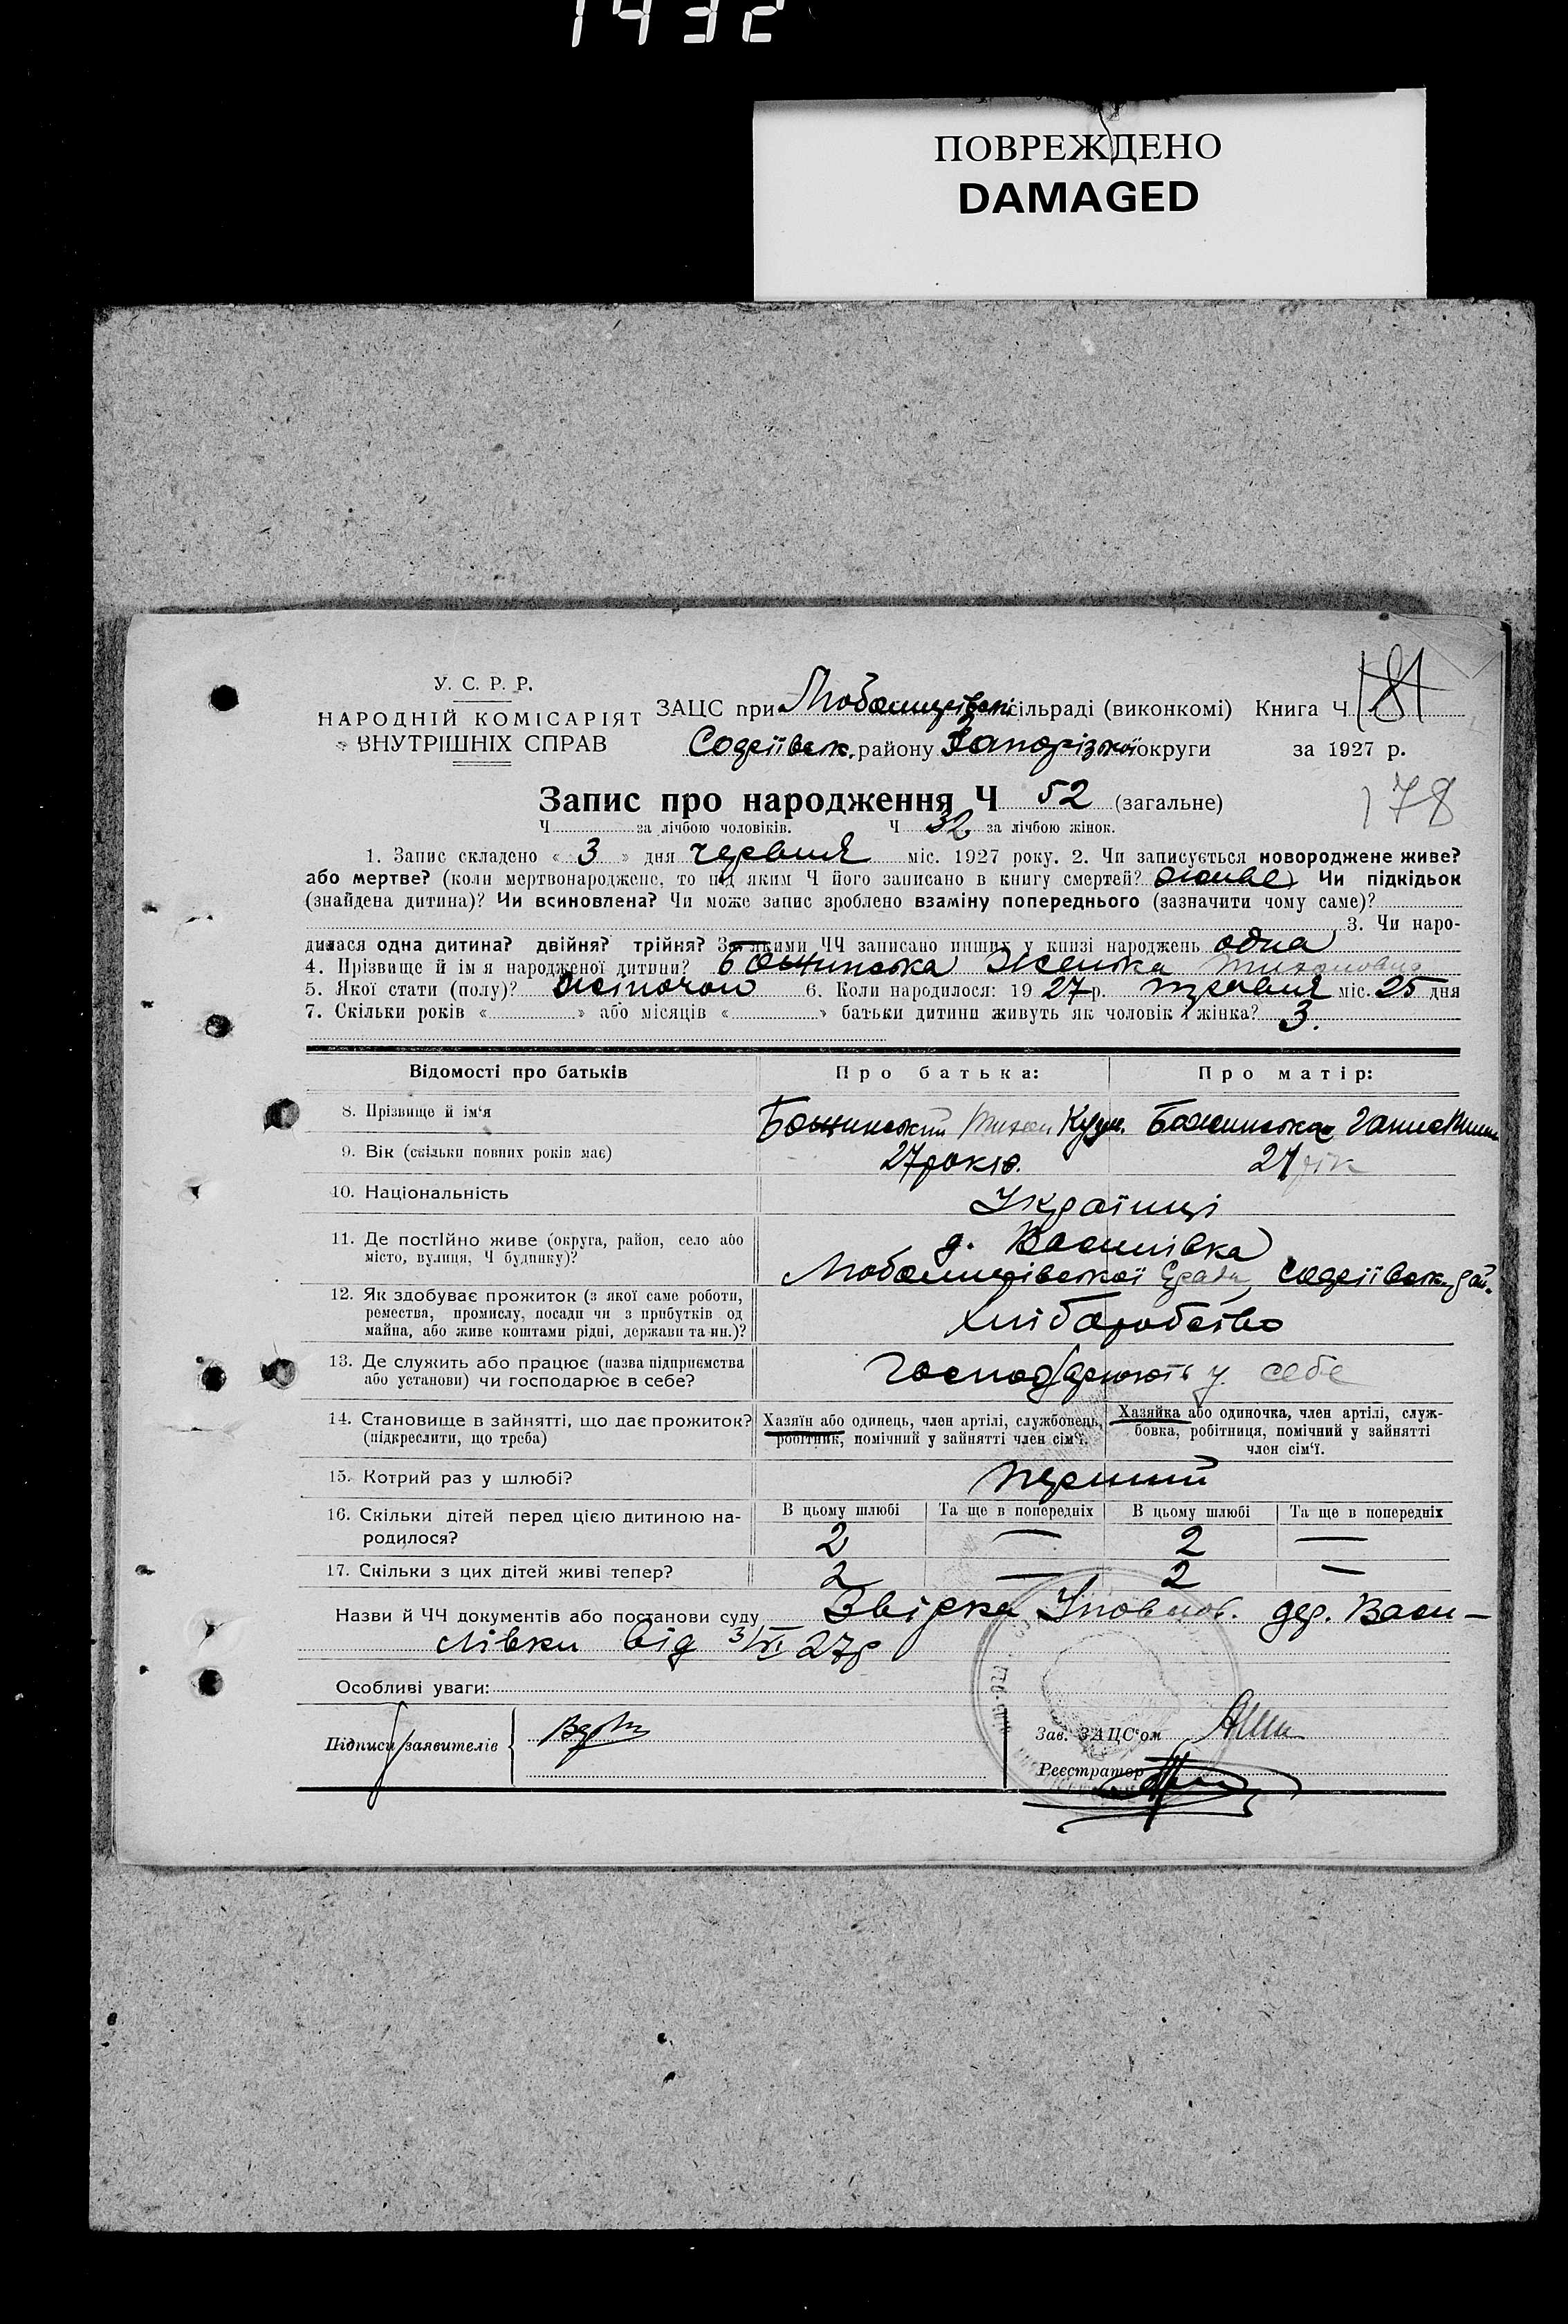 1432
ПОВРЕЖДЕНО
DAMAGED
У. С. Р. Р.
НАРОДНІЙ КОМІСАРІЯТ
ВНУТРІШНІХ СПРАВ
ЗАЦС при Любомирівськ сільраді (виконкомі) Книга Ч
181
Софіївськ. району Запорізької округи за 1927 р.
Запис про народження Ч 52 (загальне)
178
Ч за лічбою чоловіків. Ч 32 за лічбою жінок.
1. Запис складено « 3 » дня червня міс. 1927 року. 2. Чи записується новороджене живе?
або мертве? (коли мертвонароджене, то під яким Ч його записано в книгу смертей? живе Чи підкідьок
(знайдена дитина)? Чи всиновлена? Чи може запис зроблено взаміну попереднього (зазначити чому саме)?
3. Чи наро-
дилася одна дитина? двійня? трійня? За якими ЧЧ записано инших у книзі народжень одна
4. Прізвище й ім'я народженої дитини? Божинська Женька Тихоновна
5. Якої стати (полу)? жіночої 6. Коли народилося: 19 27 р. травня міс. 25 дня
7. Скільки років « » або місяців « » батьки дитини живуть як чоловік і жінка? 3.
Відомості про батьків Про батька: Про матір:
8. Прізвище й ім'я Божинський Тихон Кузм. Божинська Ганна
9. Вік (скільки повних років має) 27 років. 27 рік
10. Національність Українці
11. Де постійно живе (округа, район, село або
місто, вулиця, Ч будинку)?
д. Василівка
Любомирівської Сради Софіївськ. рай.
12. Як здобуває прожиток (з якої саме роботи,
ремества, промислу, посади чи з прибутків од
майна, або живе коштами рідні, держави та ин.)?
Хліборобство
13. Де служить або працює (назва підприємства
або установи) чи господарює в себе?
Господарюють у себе
14. Становище в зайнятті, що дає прожиток?
(підкреслити, що треба)
Хазяїн або одинець, член артілі, службовець,
робітник, помічний у зайнятті член сім'ї.
Хазяйка або одиночка, член артілі, служ-
бовка, робітниця, помічний у зайнятті
член сім'ї.
15. Котрий раз у шлюбі? перший
16. Скільки дітей перед цією дитиною на-
родилося?
В цьому шлюбі Та ще в попередніх В цьому шлюбі Та ще в попередніх
2 — 2 —
17. Скільки з цих дітей живі тепер? 2 — 2 —
Назви й ЧЧ документів або постанови суду Звірка Уповнов. дер. Васи-
лівки від 3/VI 27р
Особливі уваги:
Підписи заявителів
Зав. ЗАЦС'ом
Реєстратор